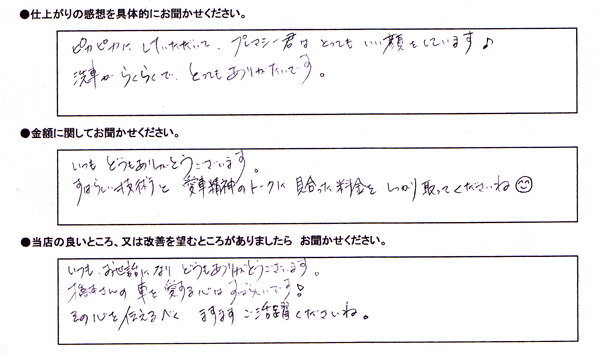 ●仕上がりの感想を具体的にお聞かせください。
ピカピカにしていただいて、プレマシー君はとってもいい顔をしています♪
洗車がらくらくで、とってもありがたいです。
●金額に関してお聞かせください。
いつもどうもありがとうございます。
すばらしい技術と愛車精神のトークに見合った料金をしっかり取ってくださいね
●当店の良いところ、又は改善を望むところがありましたら お聞かせください。
いつもお世話になりどうもありがとうございます。
さんの車を愛する心はすばらしいです!
その心を伝えるべくますますご活躍くださいね。